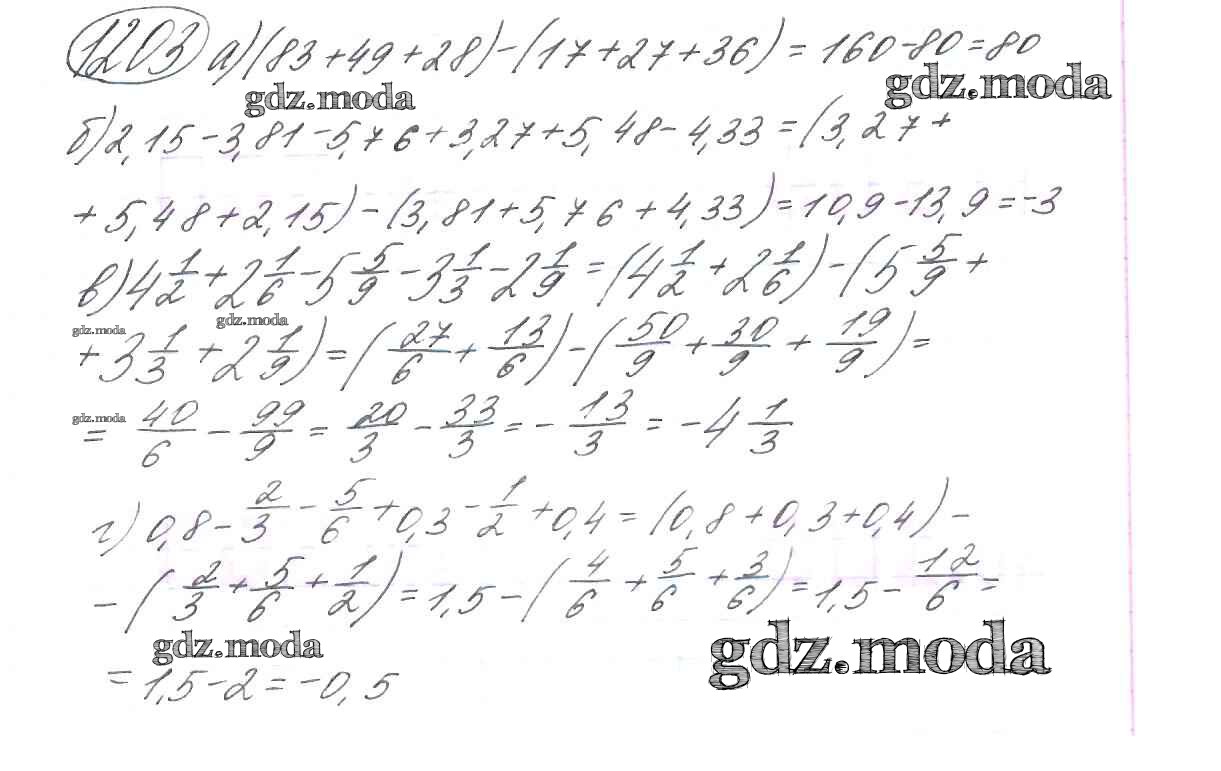 1203 а) (83+49+28)-(17+27+36) = 160-80=80
gdz.moda gdz.moda
б) 2,15-3,81-5,76+3,27+5,48-4,33=(3,27+
+5,48+2,15)-(3,81+5,76+4,33)=10,9-13,9=-3
в) 4 1/2 + 2 1/6 - 5 5/9 - 3 1/3 - 2 1/9 = (4 1/2 + 2 1/6) - (5 5/9 +
gdz.moda gdz.moda
+ 3 1/3 + 2 1/9) = (27/6 + 13/6) - (50/9 + 30/9 + 19/9) =
gdz.moda
= 40/6 - 99/9 = 20/3 - 33/3 = - 13/3 = -4 1/3
г) 0,8 - 2/3 - 5/6 + 0,3 - 1/2 + 0,4 = (0,8+0,3+0,4) -
- (2/3 + 5/6 + 1/2) = 1,5 - (4/6 + 5/6 + 3/6) = 1,5 - 12/6 =
gdz.moda gdz.moda
= 1,5-2=-0,5